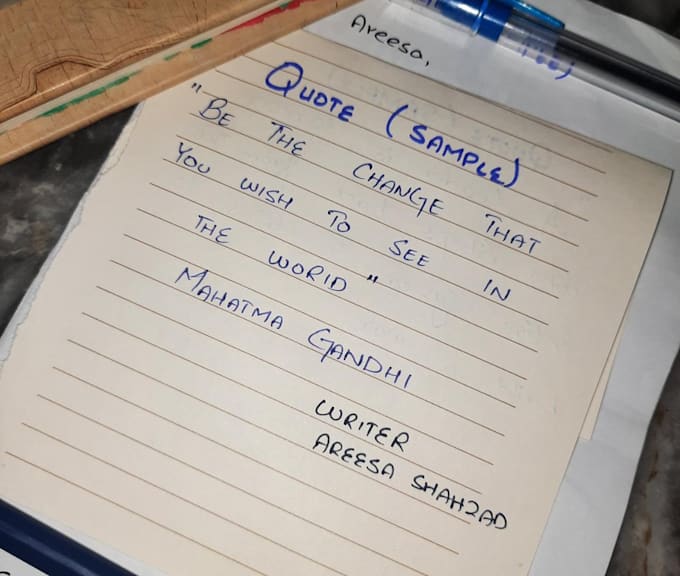 Areesa,
QUOTE (SAMPLE)
"BE THE CHANGE THAT
YOU WISH TO SEE IN
THE WORLD"
MAHATMA GANDHI
WRITER
AREESA SHAHZAD